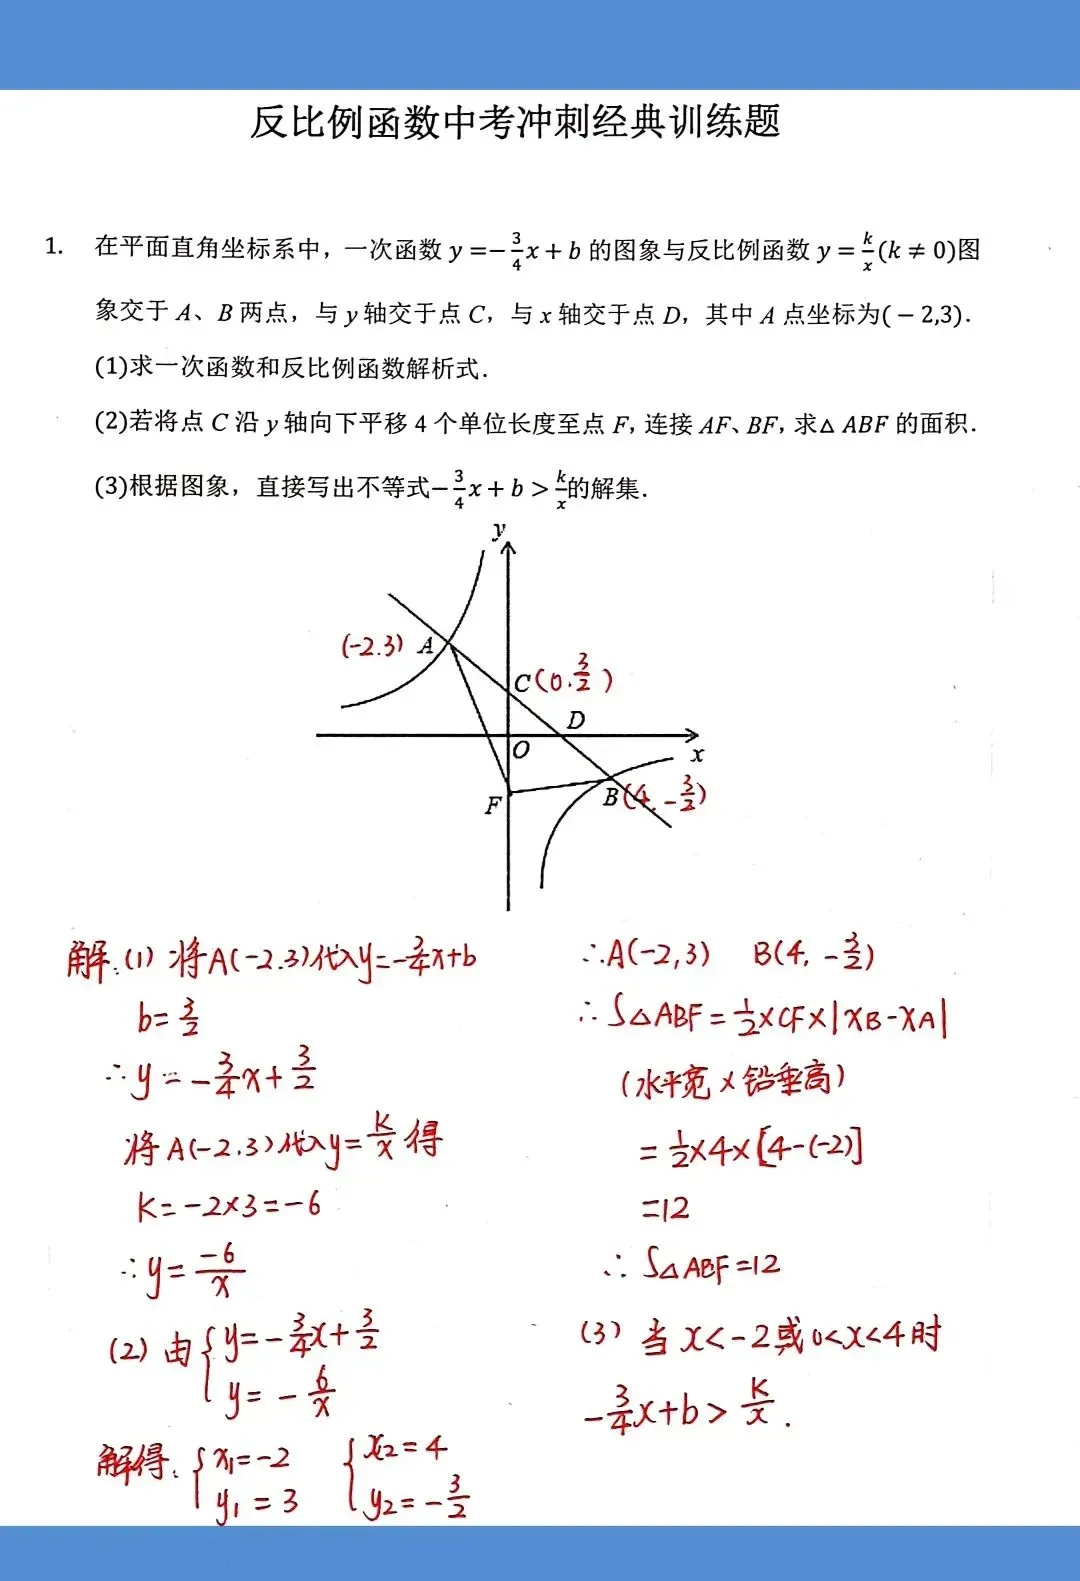 反比例函数中考冲刺经典训练题
1. 在平面直角坐标系中，一次函数 y =−3/4x + b 的图象与反比例函数 y = k/x(k ≠ 0)图
象交于 A、B 两点，与 y 轴交于点 C，与 x 轴交于点 D，其中 A 点坐标为(− 2,3).
(1)求一次函数和反比例函数解析式.
(2)若将点 C 沿 y 轴向下平移 4 个单位长度至点 F，连接 AF、BF，求△ ABF 的面积.
(3)根据图象，直接写出不等式−3/4x + b > k/x的解集.
y
(-2.3) A
C(0.3/2)
D
O
x
F
B(4,-3/2)
解:(1) 将A(-2.3)代入y=-3/4x+b
b=3/2
∴y=-3/4x+3/2
将A(-2.3)代入y=K/x得
K=-2×3=-6
∴y=-6/x
(2)由{y=-3/4x+3/2
y=-6/x
解得:{x1=-2 {x2=4
y1=3 y2=-3/2
∴A(-2,3) B(4,-3/2)
∴S△ABF=1/2×CF×|xB-xA|
(水平宽×铅垂高)
=1/2×4×[4-(-2)]
=12
∴S△ABF=12
(3) 当x<-2或0<x<4时
-3/4x+b>K/x.